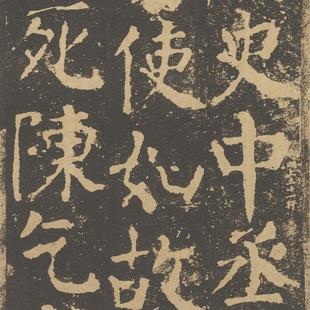 史中丞
使如故
死陳乞